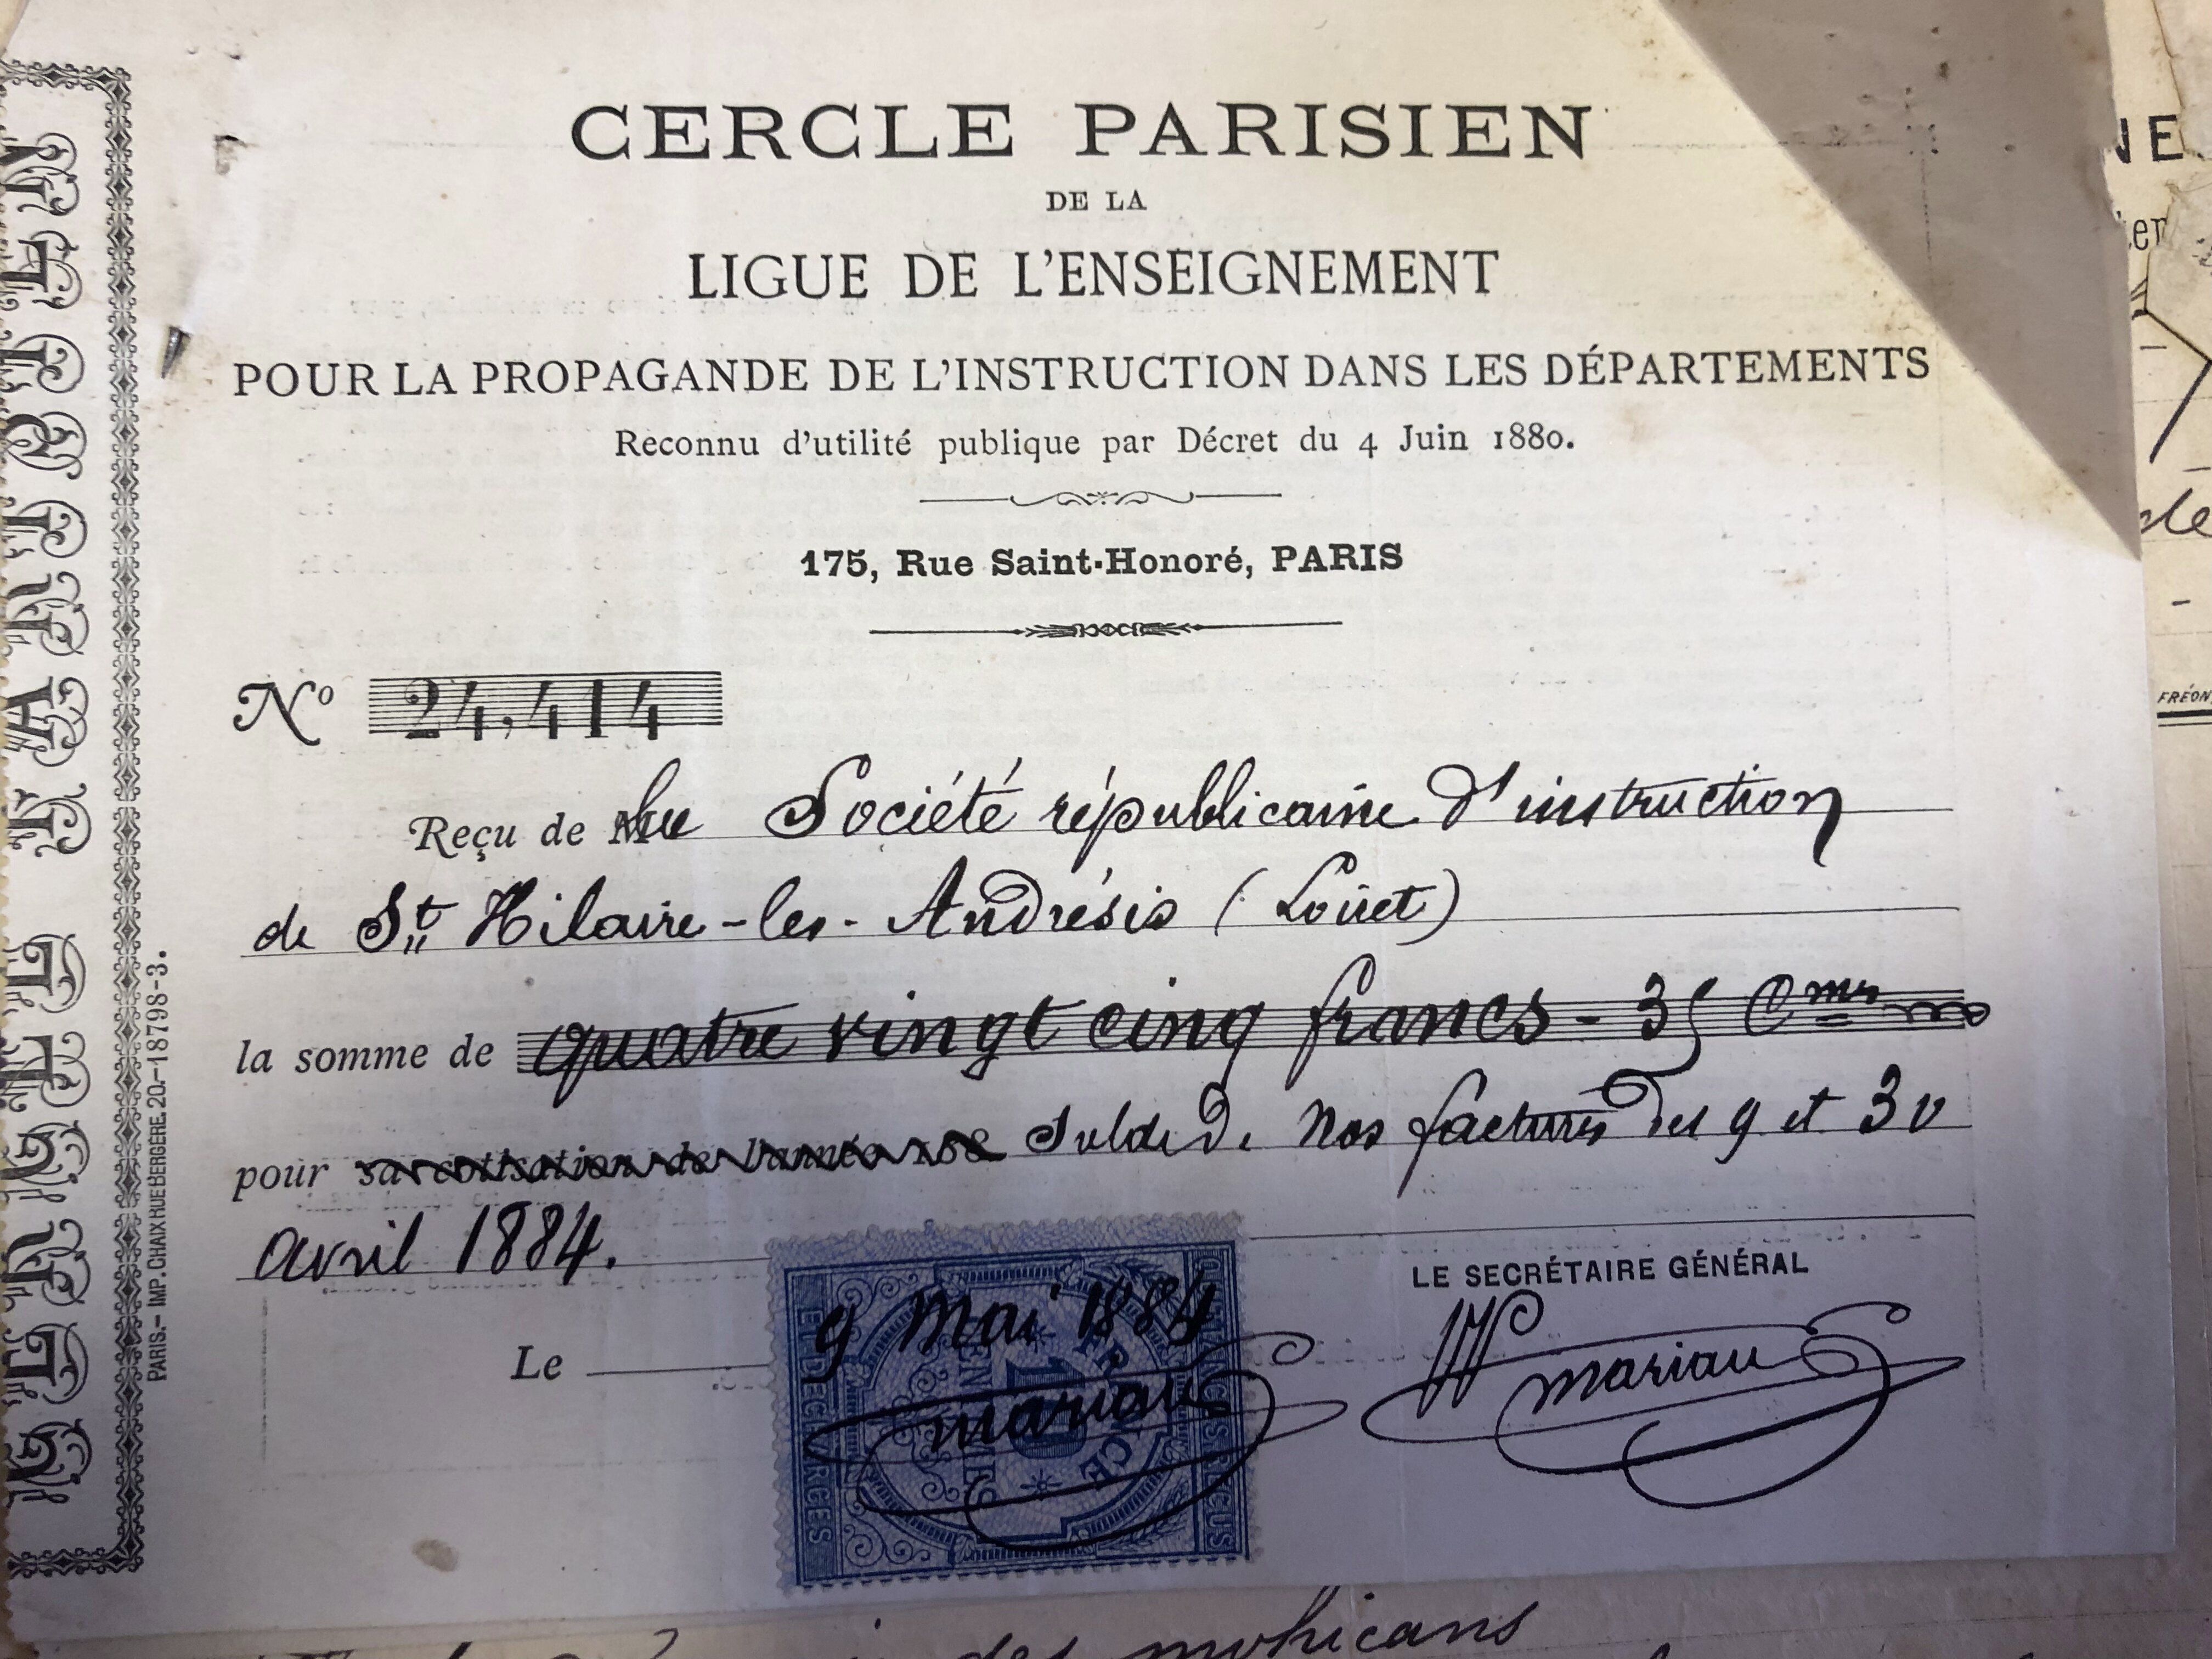 CERCLE PARISIEN
DE LA
LIGUE DE L'ENSEIGNEMENT
POUR LA PROPAGANDE DE L'INSTRUCTION DANS LES DÉPARTEMENTS
Reconnu d'utilité publique par Décret du 4 Juin 1880.
175, Rue Saint-Honoré, PARIS
Nº 24,414
Reçu de la Société républicaine d'instruction
de St Hilaire-les-Andrésis (Loiret)
la somme de quatre vingt cinq francs - 35 Cmes
pour sa cotisation de l'année 188 Solde de nos factures des 9 et 30
avril 1884.
LE SECRÉTAIRE GÉNÉRAL
Le 9 Mai 1884
mariau
mariau
QUITTANCES REÇUS
FRANCE
10
CENTIMES
ET DÉCHARGES
PARIS.- IMP. CHAIX RUE BERGÈRE. 20.-18798-3.
NE
FRÉON
de
des mohicans